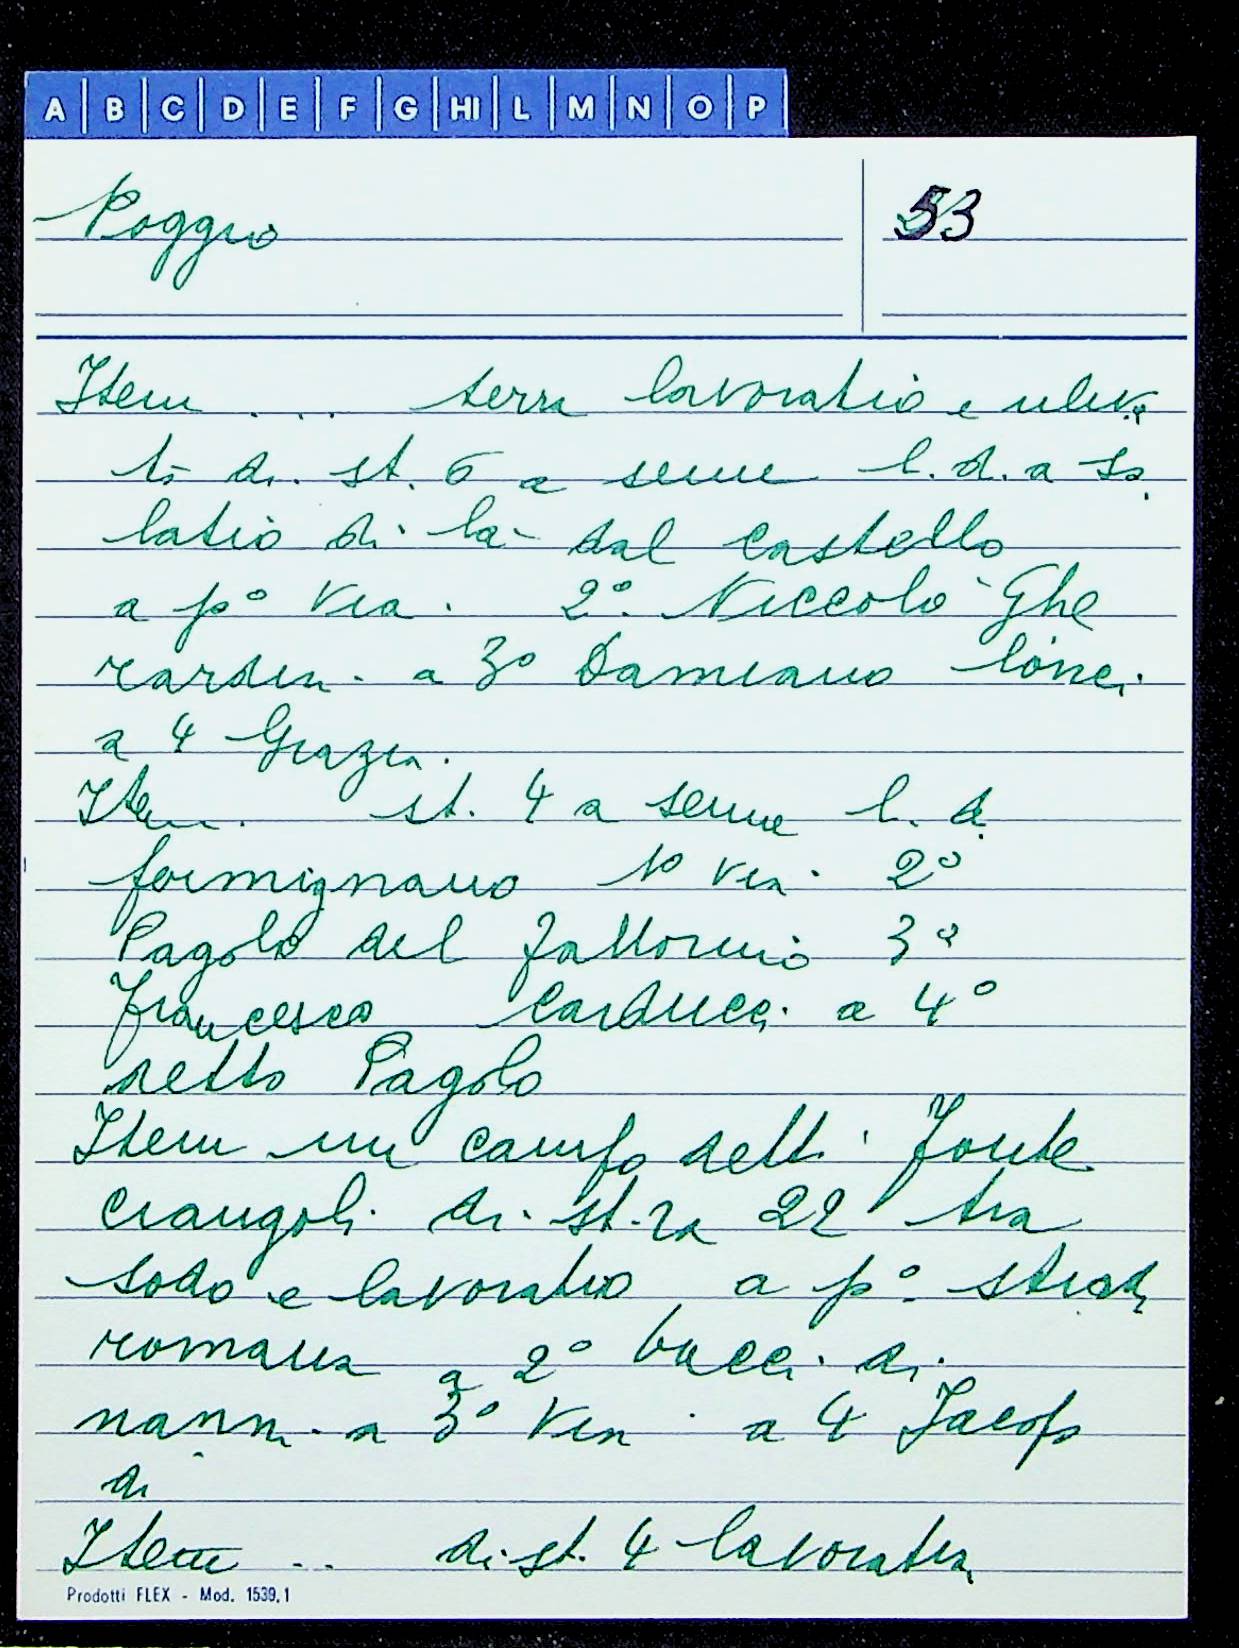 A B C D E F G HI L M N O P
Poggio 53
Item ... terra lavoratio e uliva
to di st. 6 a seme l. d. a So
latio di là dal castello
a p° via. 2° Niccolò Ghe
rardin. a 3° Damiano
a 4 Grazia.
Item. st. 4 a seme l. d.
formignano 1° via. 2°
Pagolo del Fattorino 3°
Francesco Carducci a 4°
detto Pagolo
Item un campo detti Fonte
Ciangoli di st.ra 22 tra
sodo e lavoratio a p° strada
romana a 2° bucci di
nanni a 3° via a 4 Jacopo
di
Item ... di st. 4 lavoratia
Prodotti FLEX - Mod. 1539.1